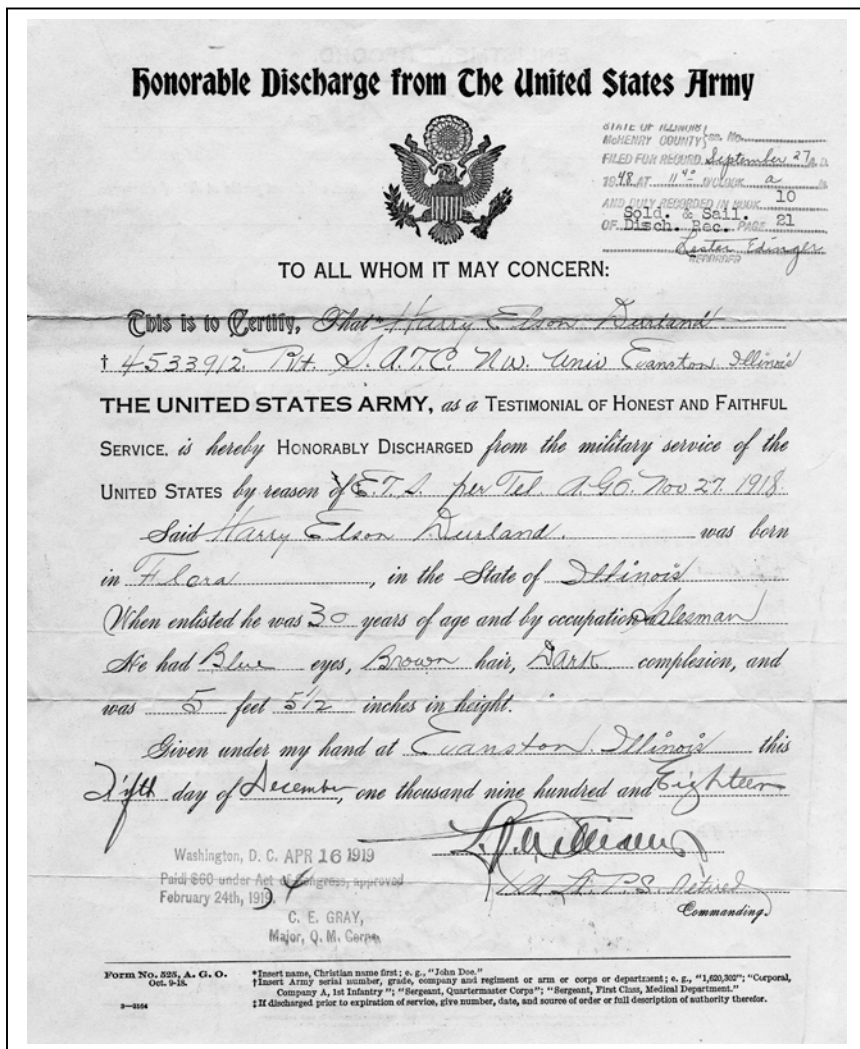 Honorable Discharge from The United States Army
STATE OF ILLINOIS
McHENRY COUNTY ss. No.
FILED FOR RECORD September 27 A.D.
1948 AT 11 40 O'CLOCK a M.
AND DULY RECORDED IN BOOK 10
OF Sold. & Sail. Disch. Rec. PAGE 21
Lester Edinger
RECORDER
TO ALL WHOM IT MAY CONCERN:
This is to Certify, That* Harry Elson Durland
† 4533912. Pvt. S.A.T.C. N.W. Univ Evanston Illinois
THE UNITED STATES ARMY, as a TESTIMONIAL OF HONEST AND FAITHFUL
SERVICE, is hereby HONORABLY DISCHARGED from the military service of the
UNITED STATES by reason of‡ E.T.S. per Tel. A.G.O. Nov 27. 1918.
Said Harry Elson Durland. was born
in Flora, in the State of Illinois
When enlisted he was 30 years of age and by occupation a Salesman
He had Blue eyes, Brown hair, Dark complexion, and
was 5 feet 5 1/2 inches in height.
Given under my hand at Evanston. Illinois this
Fifth day of December, one thousand nine hundred and Eighteen
Williams
Retired
Commanding.
Washington, D. C. APR 16 1919
Paid $60 under Act of Congress, approved
February 24th, 1919
C. E. GRAY,
Major, Q. M. Corps
Form No. 525, A. G. O.
Oct. 9-18.
3—3164
*Insert name, Christian name first; e. g., "John Doe."
†Insert Army serial number, grade, company and regiment or arm or corps or department; e. g., "1,620,302"; "Corporal,
Company A, 1st Infantry"; "Sergeant, Quartermaster Corps"; "Sergeant, First Class, Medical Department."
‡If discharged prior to expiration of service, give number, date, and source of order or full description of authority therefor.